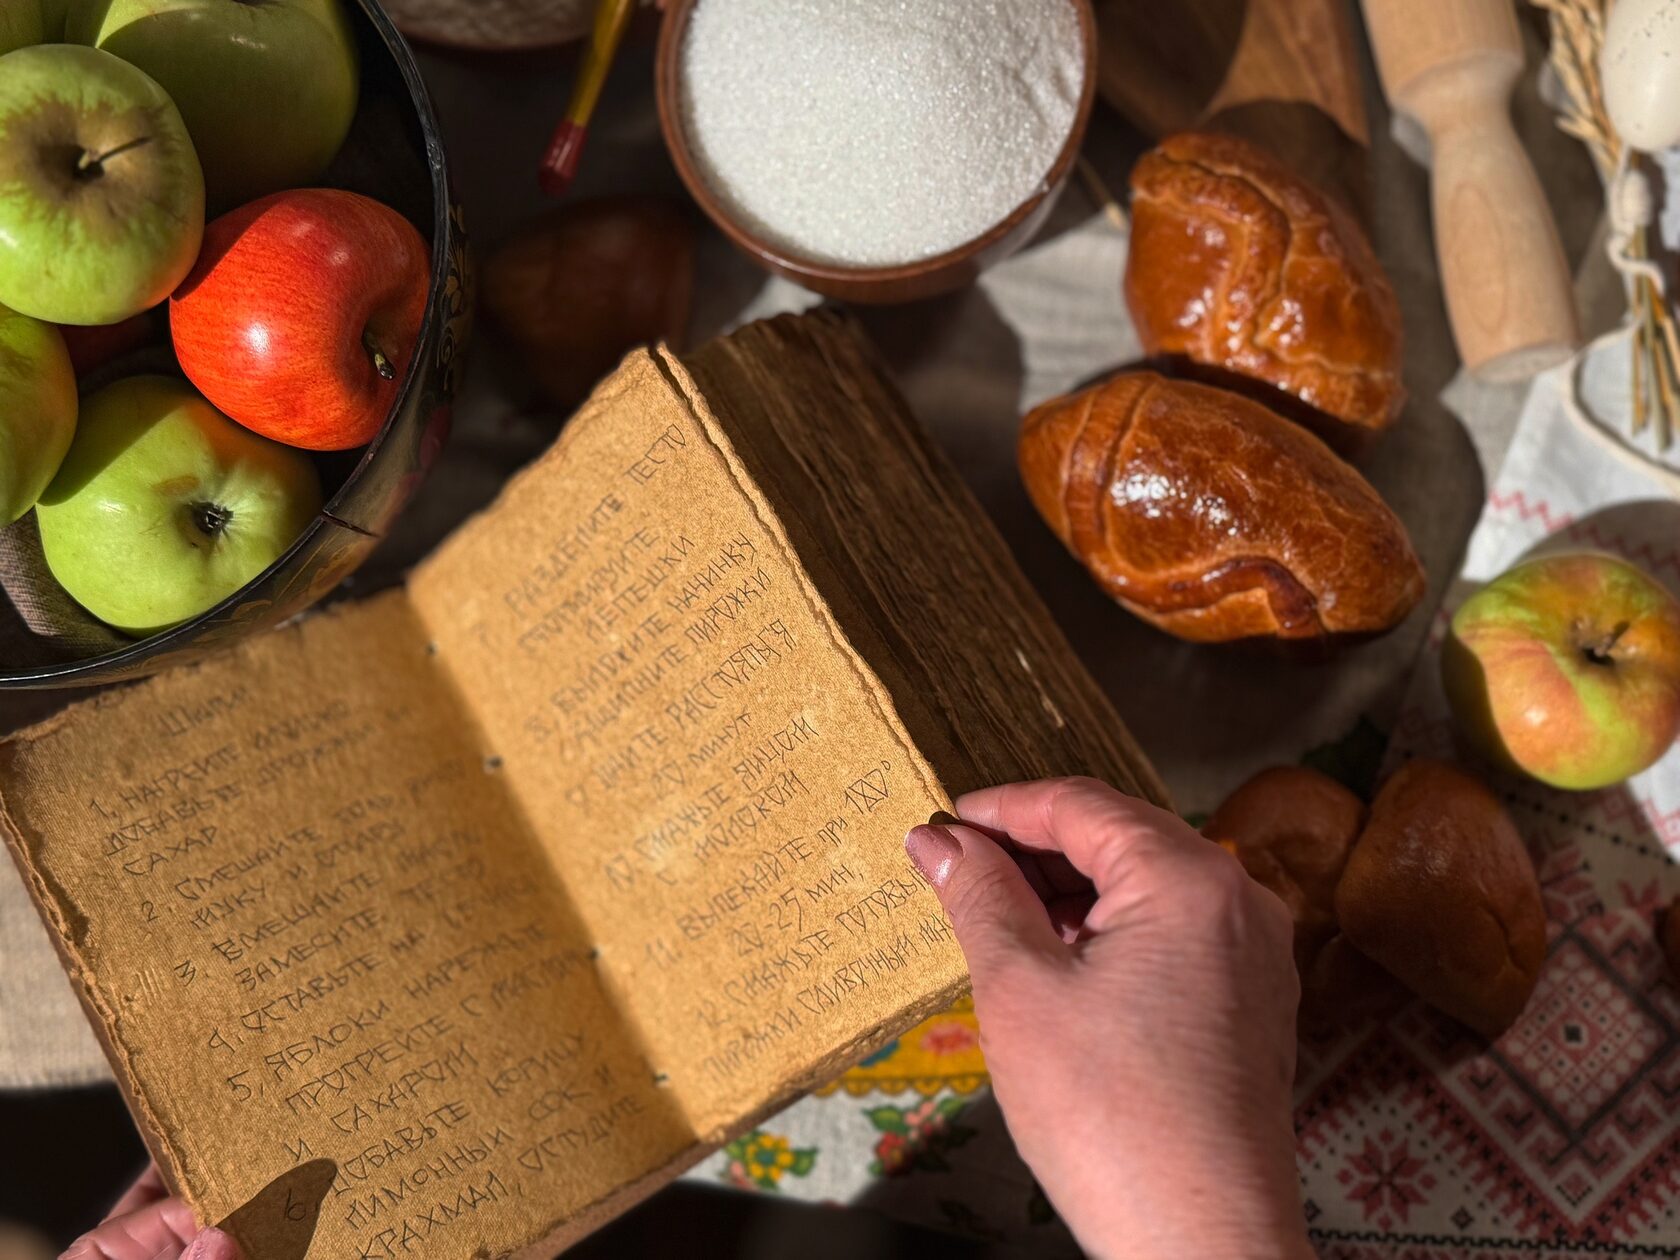 Шаги
1. НАГРЕЙТЕ МОЛОКО
ДОБАВЬТЕ ДРОЖЖИ И
САХАР
2. СМЕШАЙТЕ
МУКУ И
3. ВМЕШАЙТЕ МАСЛО
ЗАМЕСИТЕ ТЕСТО
4. ОСТАВЬТЕ НА
5, ЯБЛОКИ НАРЕЖЬТЕ
ПРОГРЕЙТЕ С МАСЛОМ
И САХАРОМ
6. ДОБАВЬТЕ КОРИЦУ
ЛИМОННЫЙ СОК И
КРАХМАЛ, ОСТУДИТЕ
7 РАЗДЕЛИТЕ ТЕСТО
СФОРМИРУЙТЕ
ЛЕПЕШКИ
8. ВЫЛОЖИТЕ НАЧИНКУ
ЗАЩИПНИТЕ ПИРОЖКИ
9 ДАЙТЕ РАССТОЯТЬСЯ
20 МИНУТ
10. СМАЖЬТЕ ЯЙЦОМ
С МОЛОКОМ
11. ВЫПЕКАЙТЕ ПРИ 180°
20-25 МИН,
12 СМАЖЬТЕ ГОТОВЫ
ПИРОЖКИ СЛИВОЧНЫМ МА